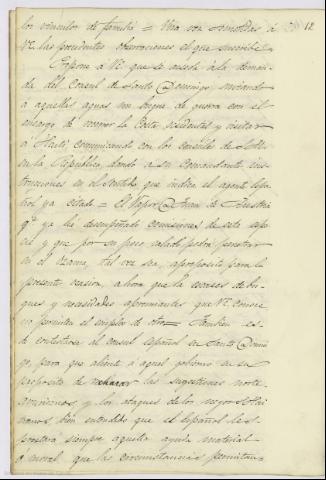 12
los vinculos de familia = Una vez sometidas á
V.E. las precedentes observaciones el que suscribe
Expone á V.E. que se acceda á la deman-
da del Consul de Santo Domingo, enviando
á aquellas aguas un buque de guerra con el
encargo de recorrer la Costa occidental y visitar
á Haiti comunicando con los consules de S.M.
en la Republica, dando a su Comandante ins-
trucciones en el sentido que indica el agente Espa-
ñol ya citado = El Vapor D. Juan de Austria
q.e ya ha desempeñado comisiones de esta espe-
cie y que por su poco calado podrá penetrar
en el Ozama, tal vez sea, aproposito para la
presente ocasion, ahora que la escasez de bu-
ques y necesidades apremiantes que V.E. conoce
no permiten el empleo de otro = Tambien es
de contestarse al Consul español en Santo Domin-
go, para que aliente á aquel gobierno en su
proposito de rechazar las sugestiones norte
americanas y los ataques de los negros
bien entendido que el Español les
prestará siempre aquella ayuda material
o moral que las circunstancias permitan